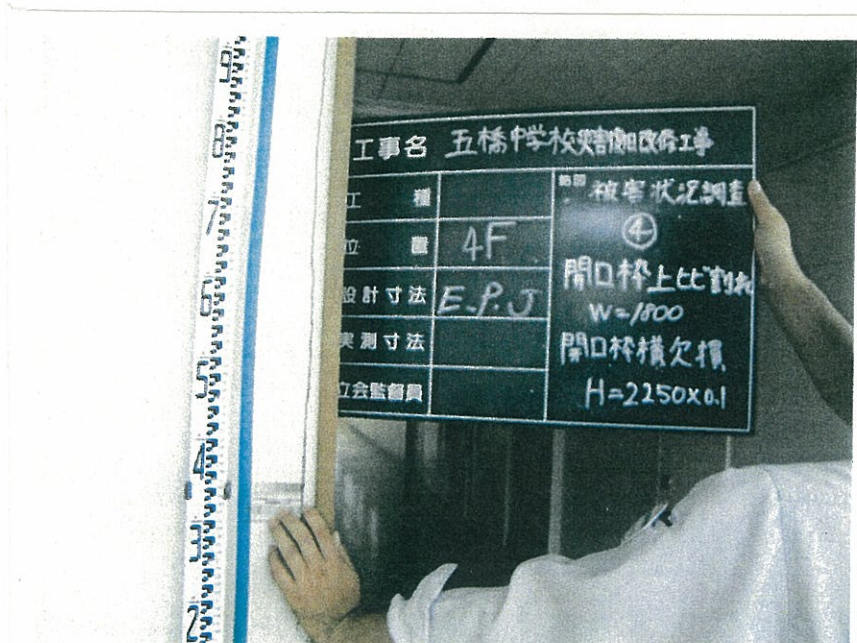 工事名 五橋中学校災害復旧改修工事
工種
位置 4F
設計寸法 E.P.J
実測寸法
立会監督員
略図
被害状況調査
④
開口枠上ヒビ割れ
W=1800
開口枠横欠損
H=2250×0.1
9
8
7
6
5
4
3
2